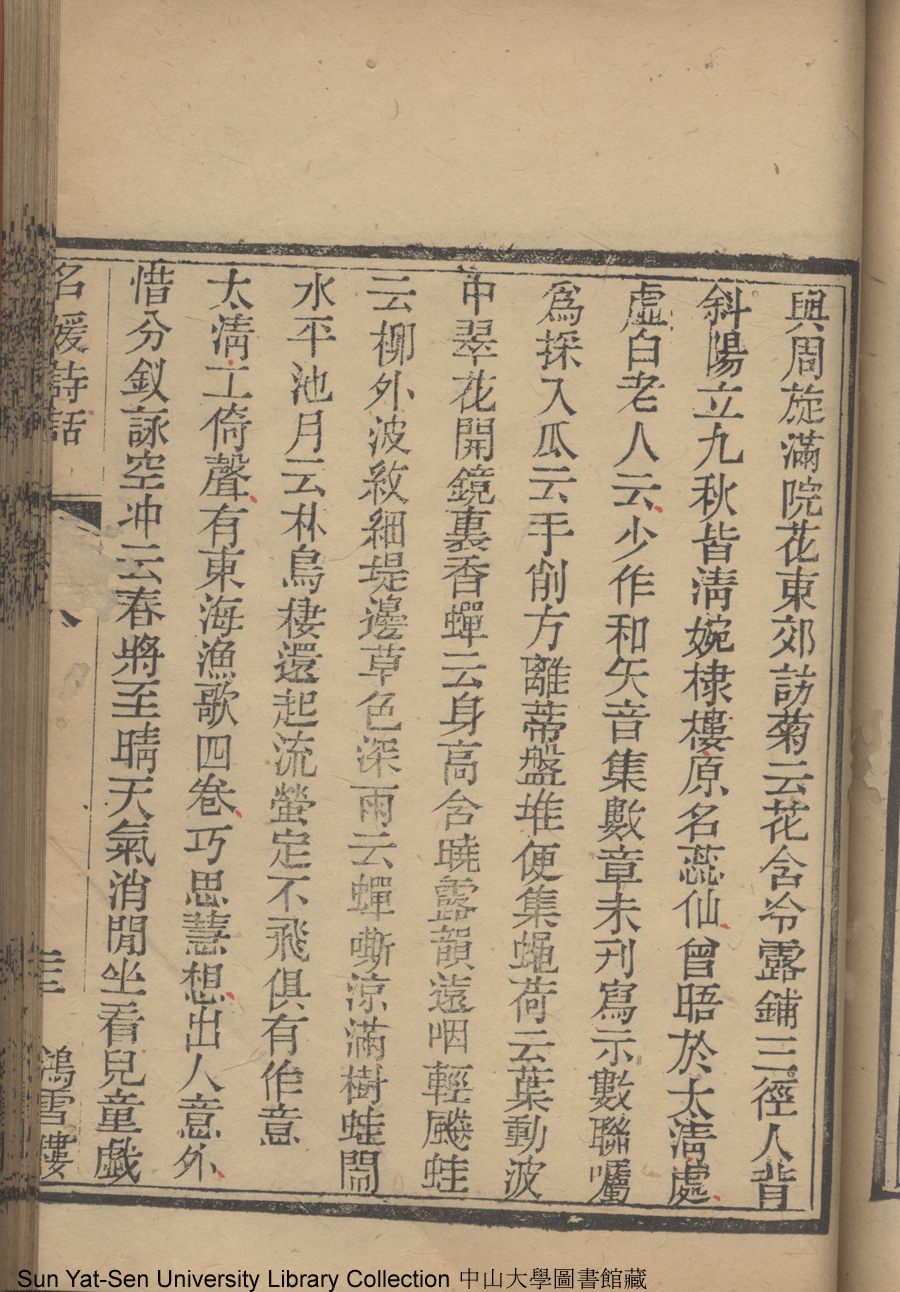 與周旋滿院花東郊訪菊云花含冷露鋪三徑人背
斜陽立九秋皆清婉棣樓原名蕊仙曾晤於太清處
虛白老人云少作和矢音集數章未刊寫示數聯囑
為採入瓜云手削方離蒂盤堆便集蠅荷云葉動波
中翠花開鏡裏香蟬云身高含曉露韻遠咽輕颸蛙
云柳外波紋細堤邊草色深雨云蟬嘶涼滿樹蛙鬧
水平池月云朴鳥棲還起流螢定不飛俱有作意
太清工倚聲有東海漁歌四卷巧思慧想出人意外
惜分釵詠空冲云春將至晴天氣消閒坐看兒童戲
名媛詩話
八
鴻雪樓
Sun Yat-Sen University Library Collection 中山大學圖書館藏